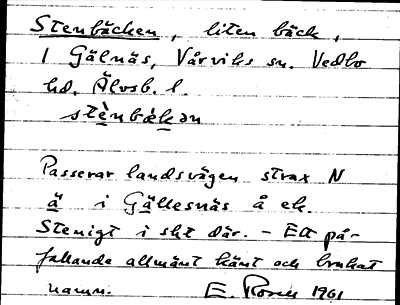 Stenbäcken, liten bäck,
I Gälnäs, Vårviks sn. Vedbo
hd. Älvsb. l.
stènbàkən
Passerar landsvägen strax N
ä i Gällesnäs å ek.
Stenigt i skt där. – Ett på-
fallande allmänt känt och brukat
namn. E. Rosén 1961